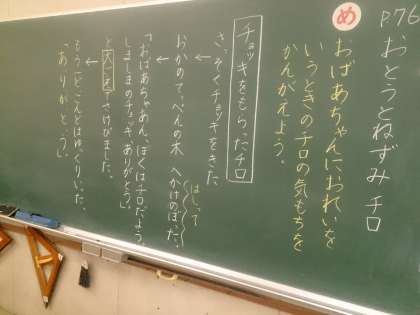 P.76
おとうとねずみ チロ
め
おばあちゃんにおれいを
いうときのチロの気もちを
かんがえよう。
チョッキをもらったチロ
さっそくチョッキをきた
↓
おかのてっぺんの木 へかけのぼった。
はしって
「おばあちゃあん、ぼくはチロだよう。
しましまのチョッキ、ありがとう。」
と大ごえでさけびました。
↓
もういちど、こんどはゆっくりいった。
「あ、り、が、と、う。」